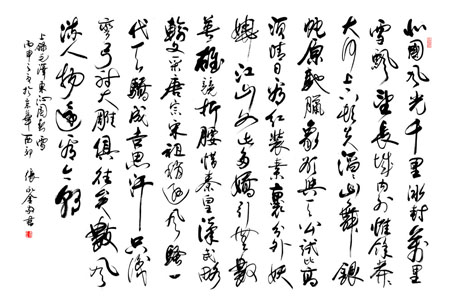 北國风光千里冰封萬里
雪飘望长城内外惟馀莽莽
大河上下顿失滔滔山舞銀
蛇原驰臘象欲與天公试比高
须晴日看红装素裹分外妖
娆江山如此多嬌引無數
英雄競折腰惜秦皇漢武略
輸文采唐宗宋祖稍逊风骚一
代天驕成吉思汗只識
弯弓射大雕俱往矣數风
流人物還看今朝
上錄毛澤東沁園春雪
丙申